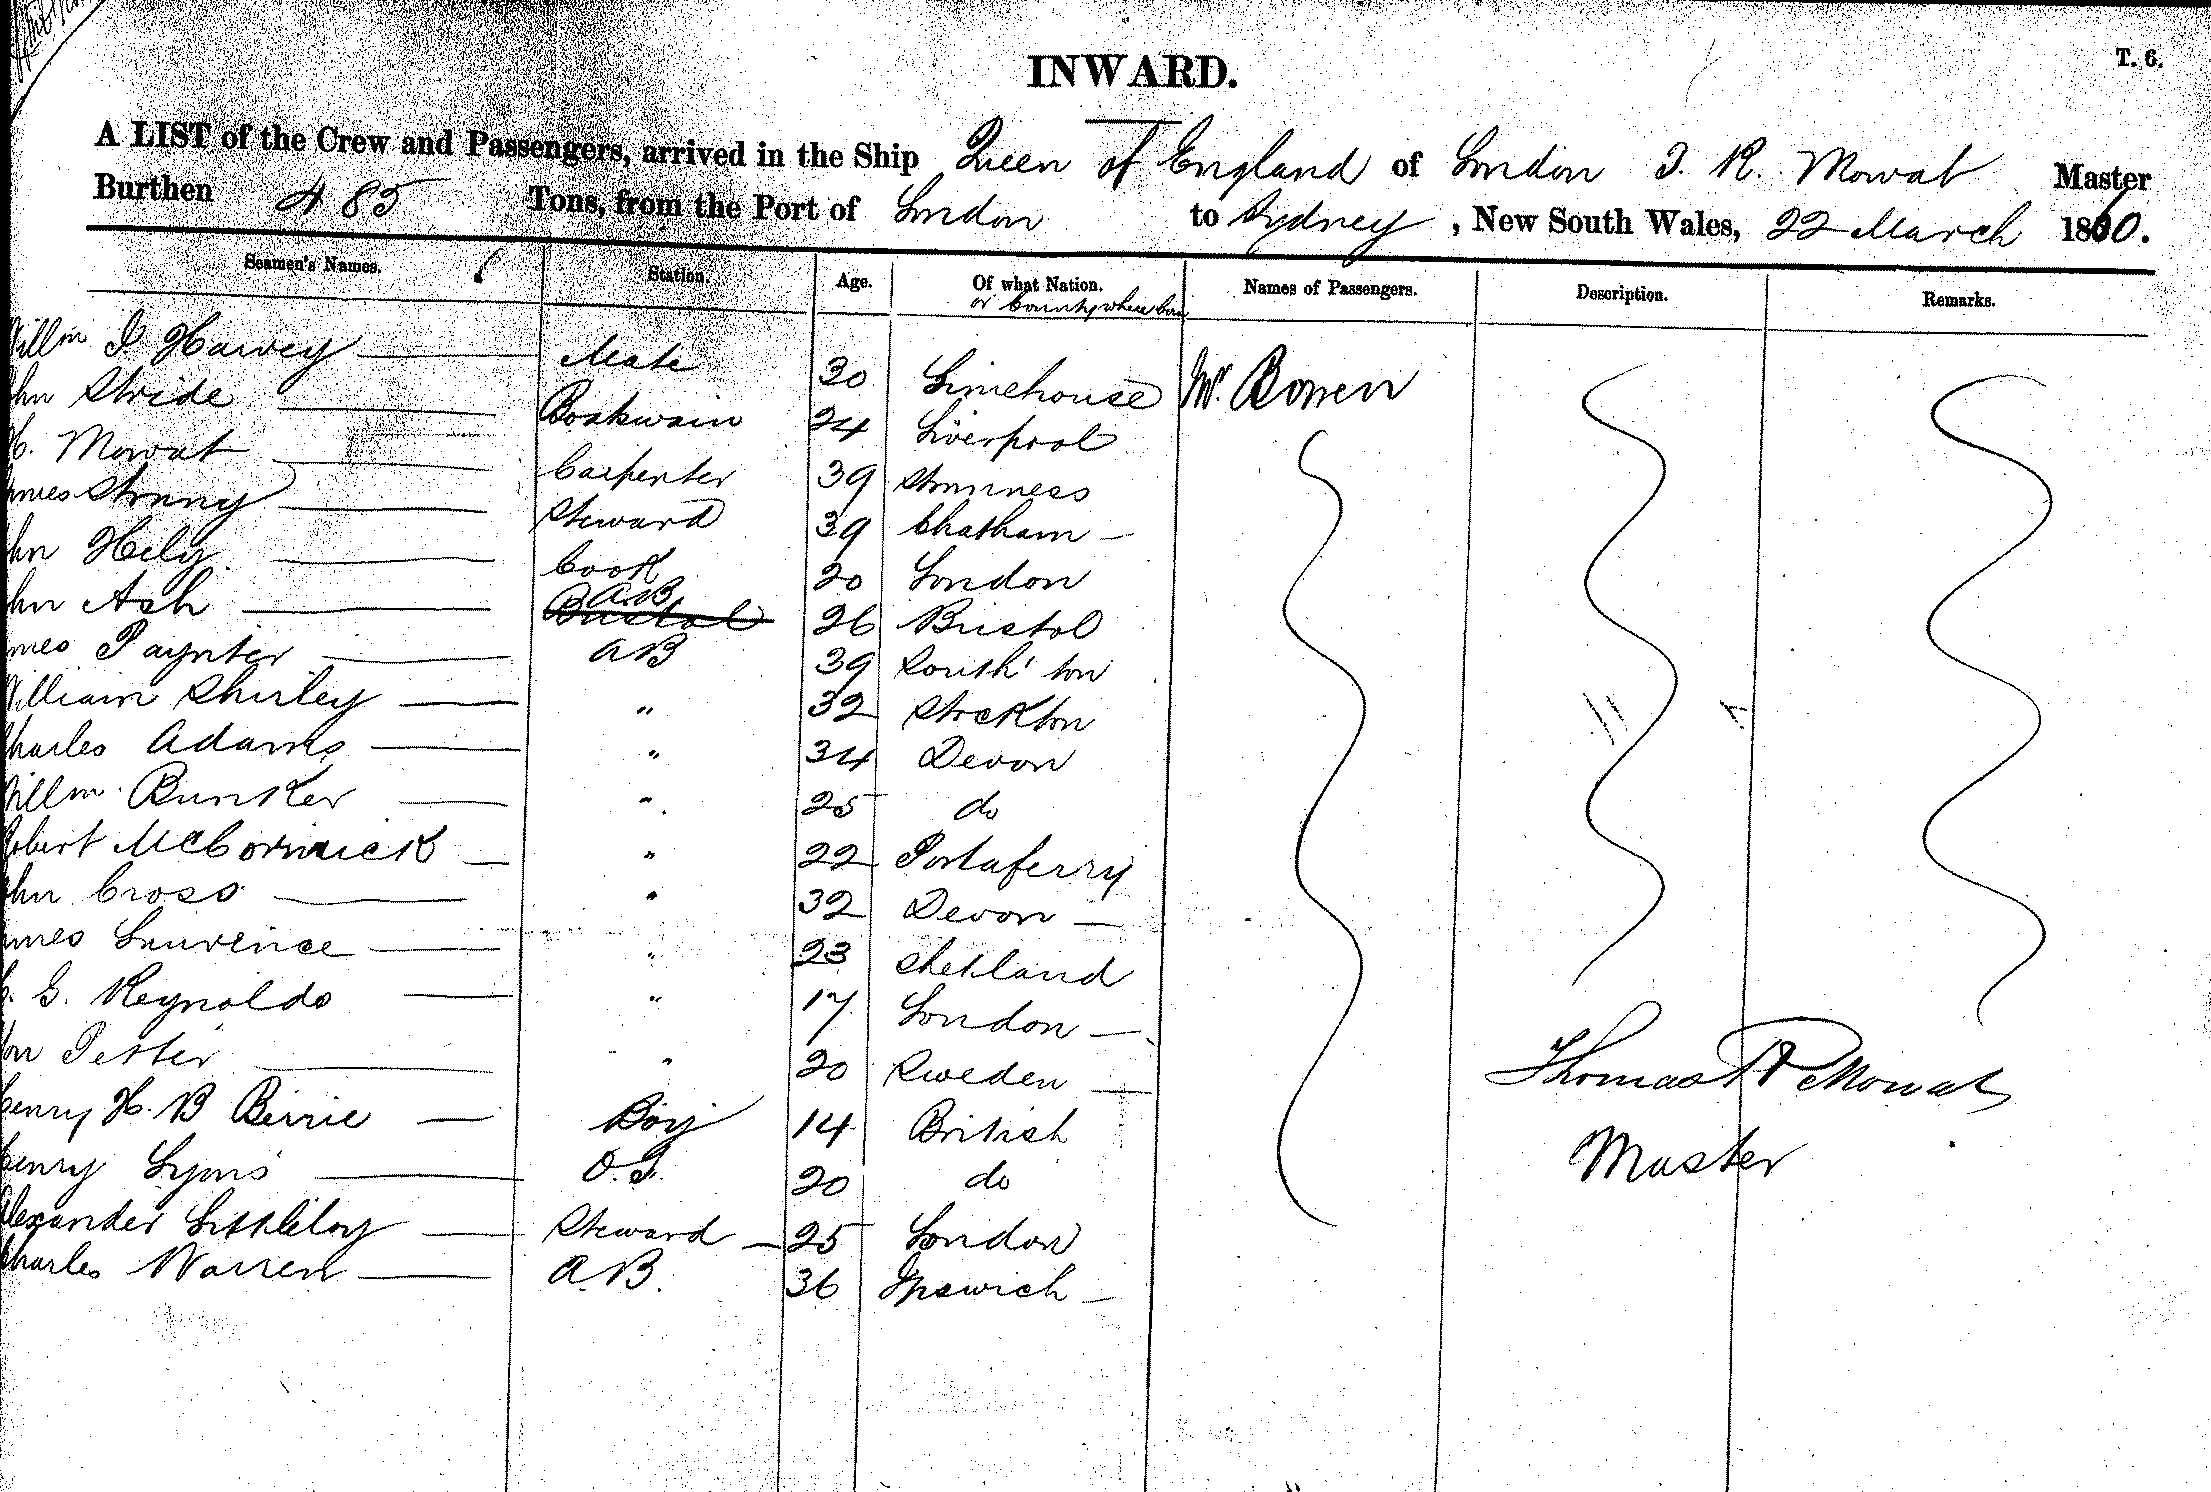 INWARD.
T. 6.
A LIST of the Crew and Passengers, arrived in the Ship Queen of England of London T. R. Mowat Master
Burthen 485 Tons, from the Port of London to Sydney, New South Wales, 22 March 1860.
Seamen's Names. Station. Age. Of what Nation. Names of Passengers. Description. Remarks.
or County where born
Willm J Harvey Mate 30 Limehouse Mr. Bowen
hn Stride Boatswain 24 Liverpool
H. Mowat Carpenter 39 Stromness
ames Steward 39 Chatham
hn Hely Cook 20 London
hn Ash Bristol AB 26 Bristol
mes Paynter AB 39 South'ton
William Shirley " 32 Stockton
harles Adams " 34 Devon
Willm. Bunker " 25 do
obert McCormick " 22 Portaferry
hn Cross " 32 Devon
ames Laurence " 23 Shetland
G. Reynolds " 17 London
Petter " 20 Sweden
Henry H. B Birrie Boy 14 British
Henry Lyons O.S. 20 do
Alexander Littleloy Steward 25 London
harles Warren A.B. 36 Ipswich
Thomas R Mowat
Master